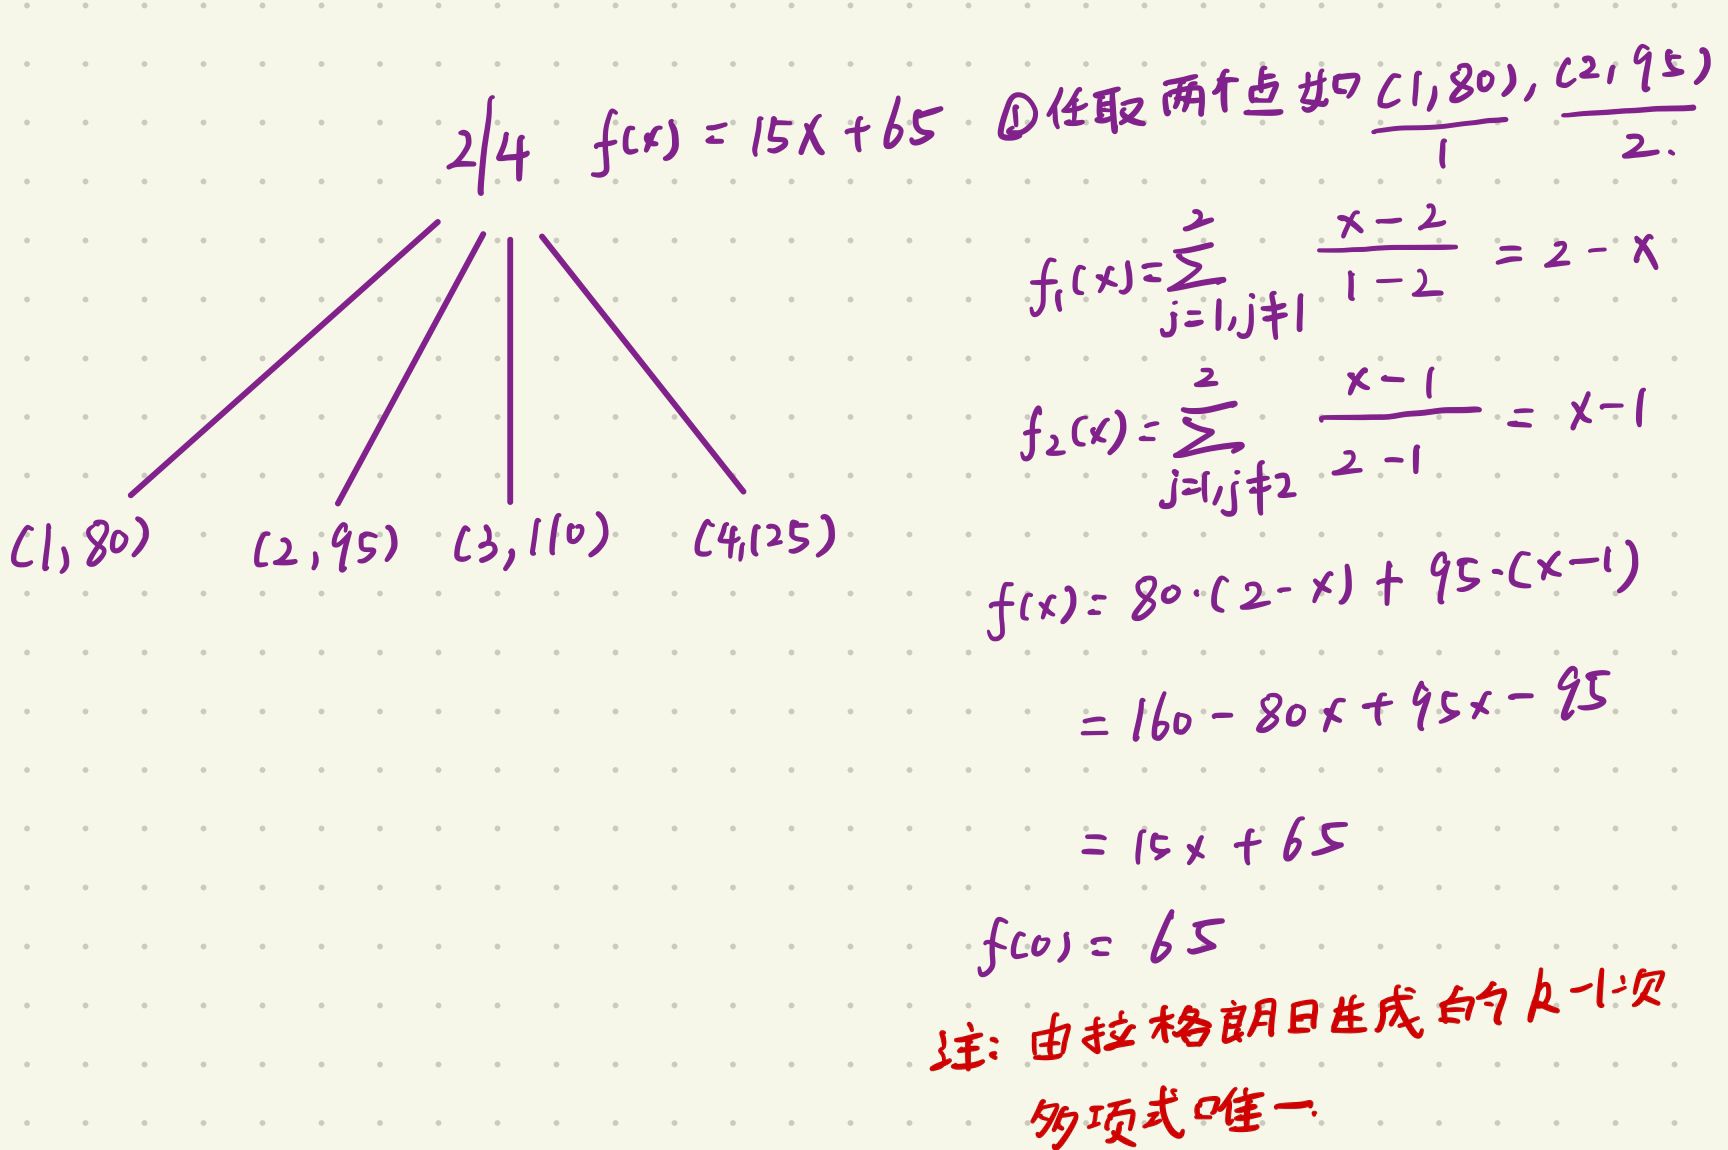 2/4 f(x) = 15x + 65
(1, 80) (2, 95) (3, 110) (4, 125)
① 任取两个点如 (1, 80), (2, 95)
1 2.
2
f₁(x) = ∑ x-2 / 1-2 = 2 - x
j=1, j≠1
2
f₂(x) = ∑ x-1 / 2-1 = x - 1
j=1, j≠2
f(x) = 80·(2-x) + 95·(x-1)
= 160 - 80x + 95x - 95
= 15x + 65
f(0) = 65
注: 由拉格朗日生成的 k-1次
多项式唯一.